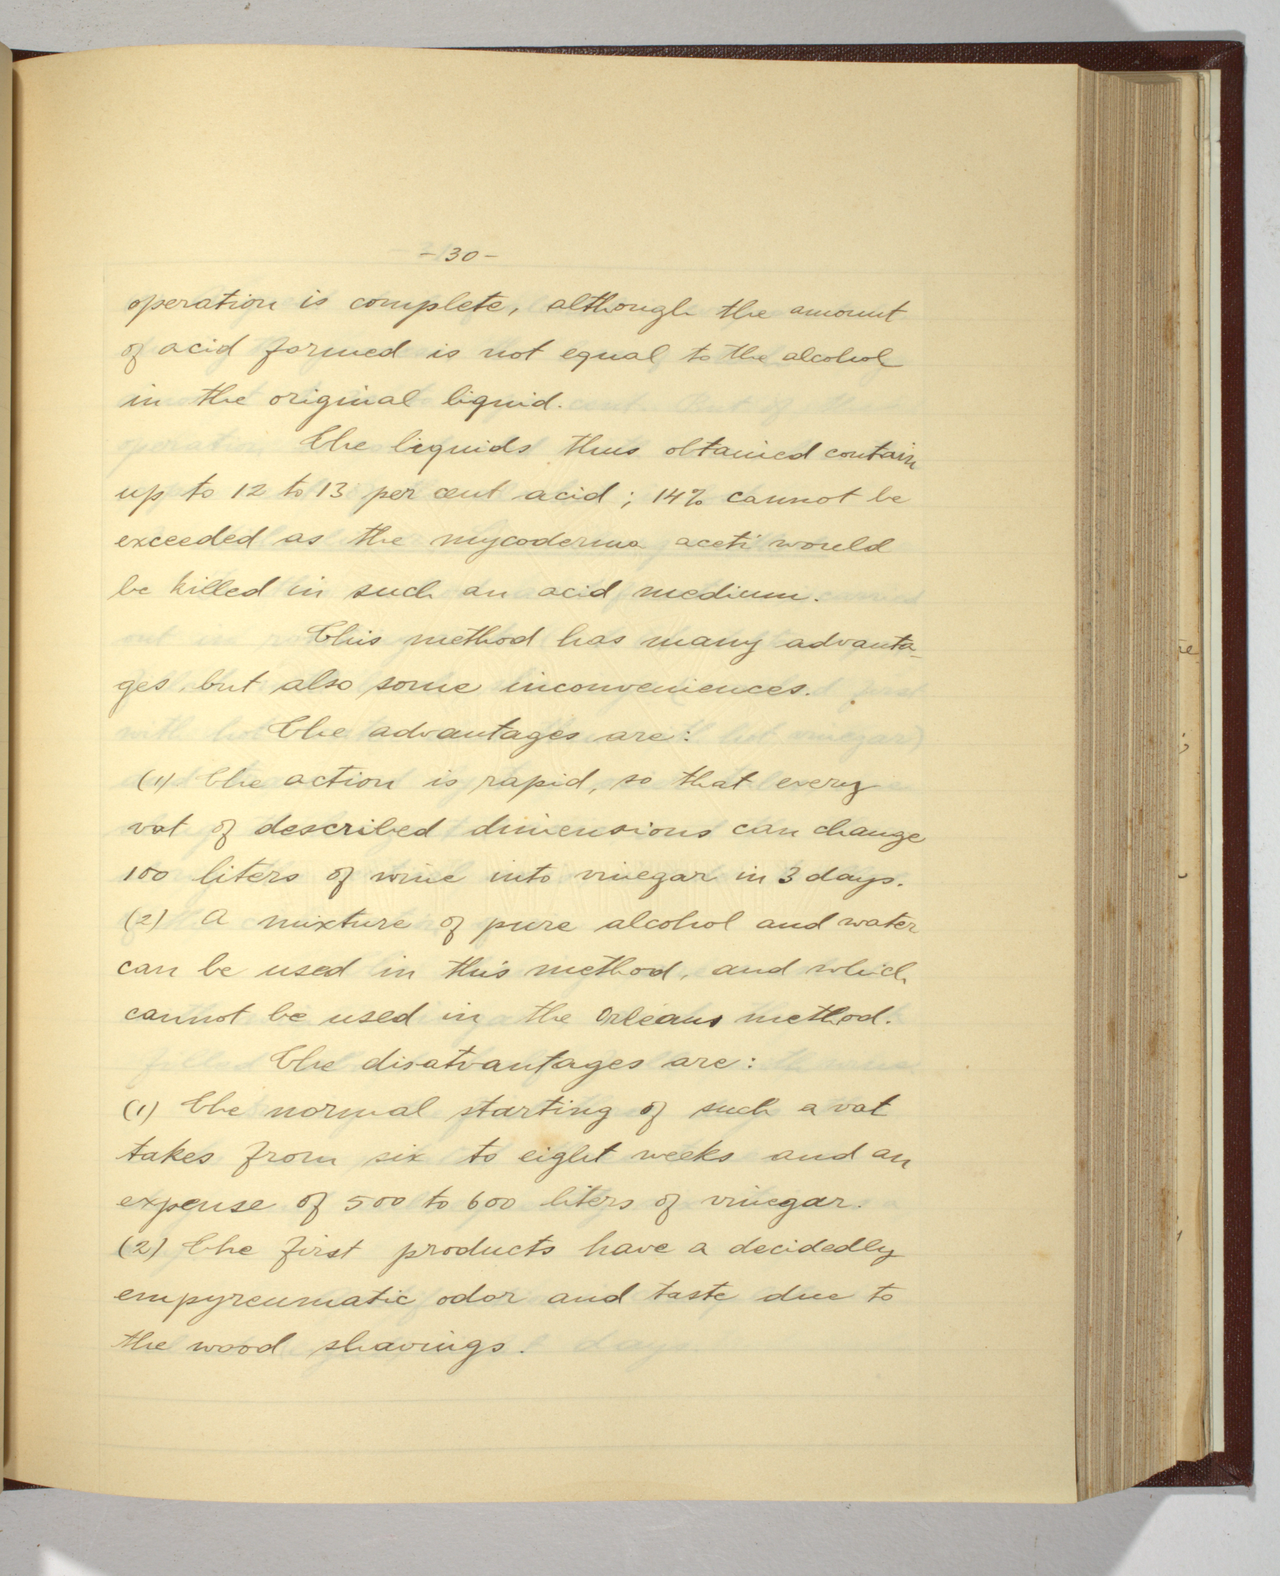 -30-
operation is complete, although the amount
of acid formed is not equal to the alcohol
in the original liquid.
The liquids thus obtained contain
up to 12 to 13 per cent acid; 14% cannot be
exceeded as the mycoderma aceti would
be killed in such an acid medium.
This method has many advanta-
ges but also some inconveniences.
The advantages are:
(1) The action is rapid, so that every
vat of described dimensions can change
100 liters of wine into vinegar in 3 days.
(2) A mixture of pure alcohol and water
can be used in this method, and which
cannot be used in the Orleans method.
The disatvantages are:
(1) The normal starting of such a vat
takes from six to eight weeks and an
expense of 500 to 600 liters of vinegar.
(2) The first products have a decidedly
empyreumatic odor and taste due to
the wood shavings.